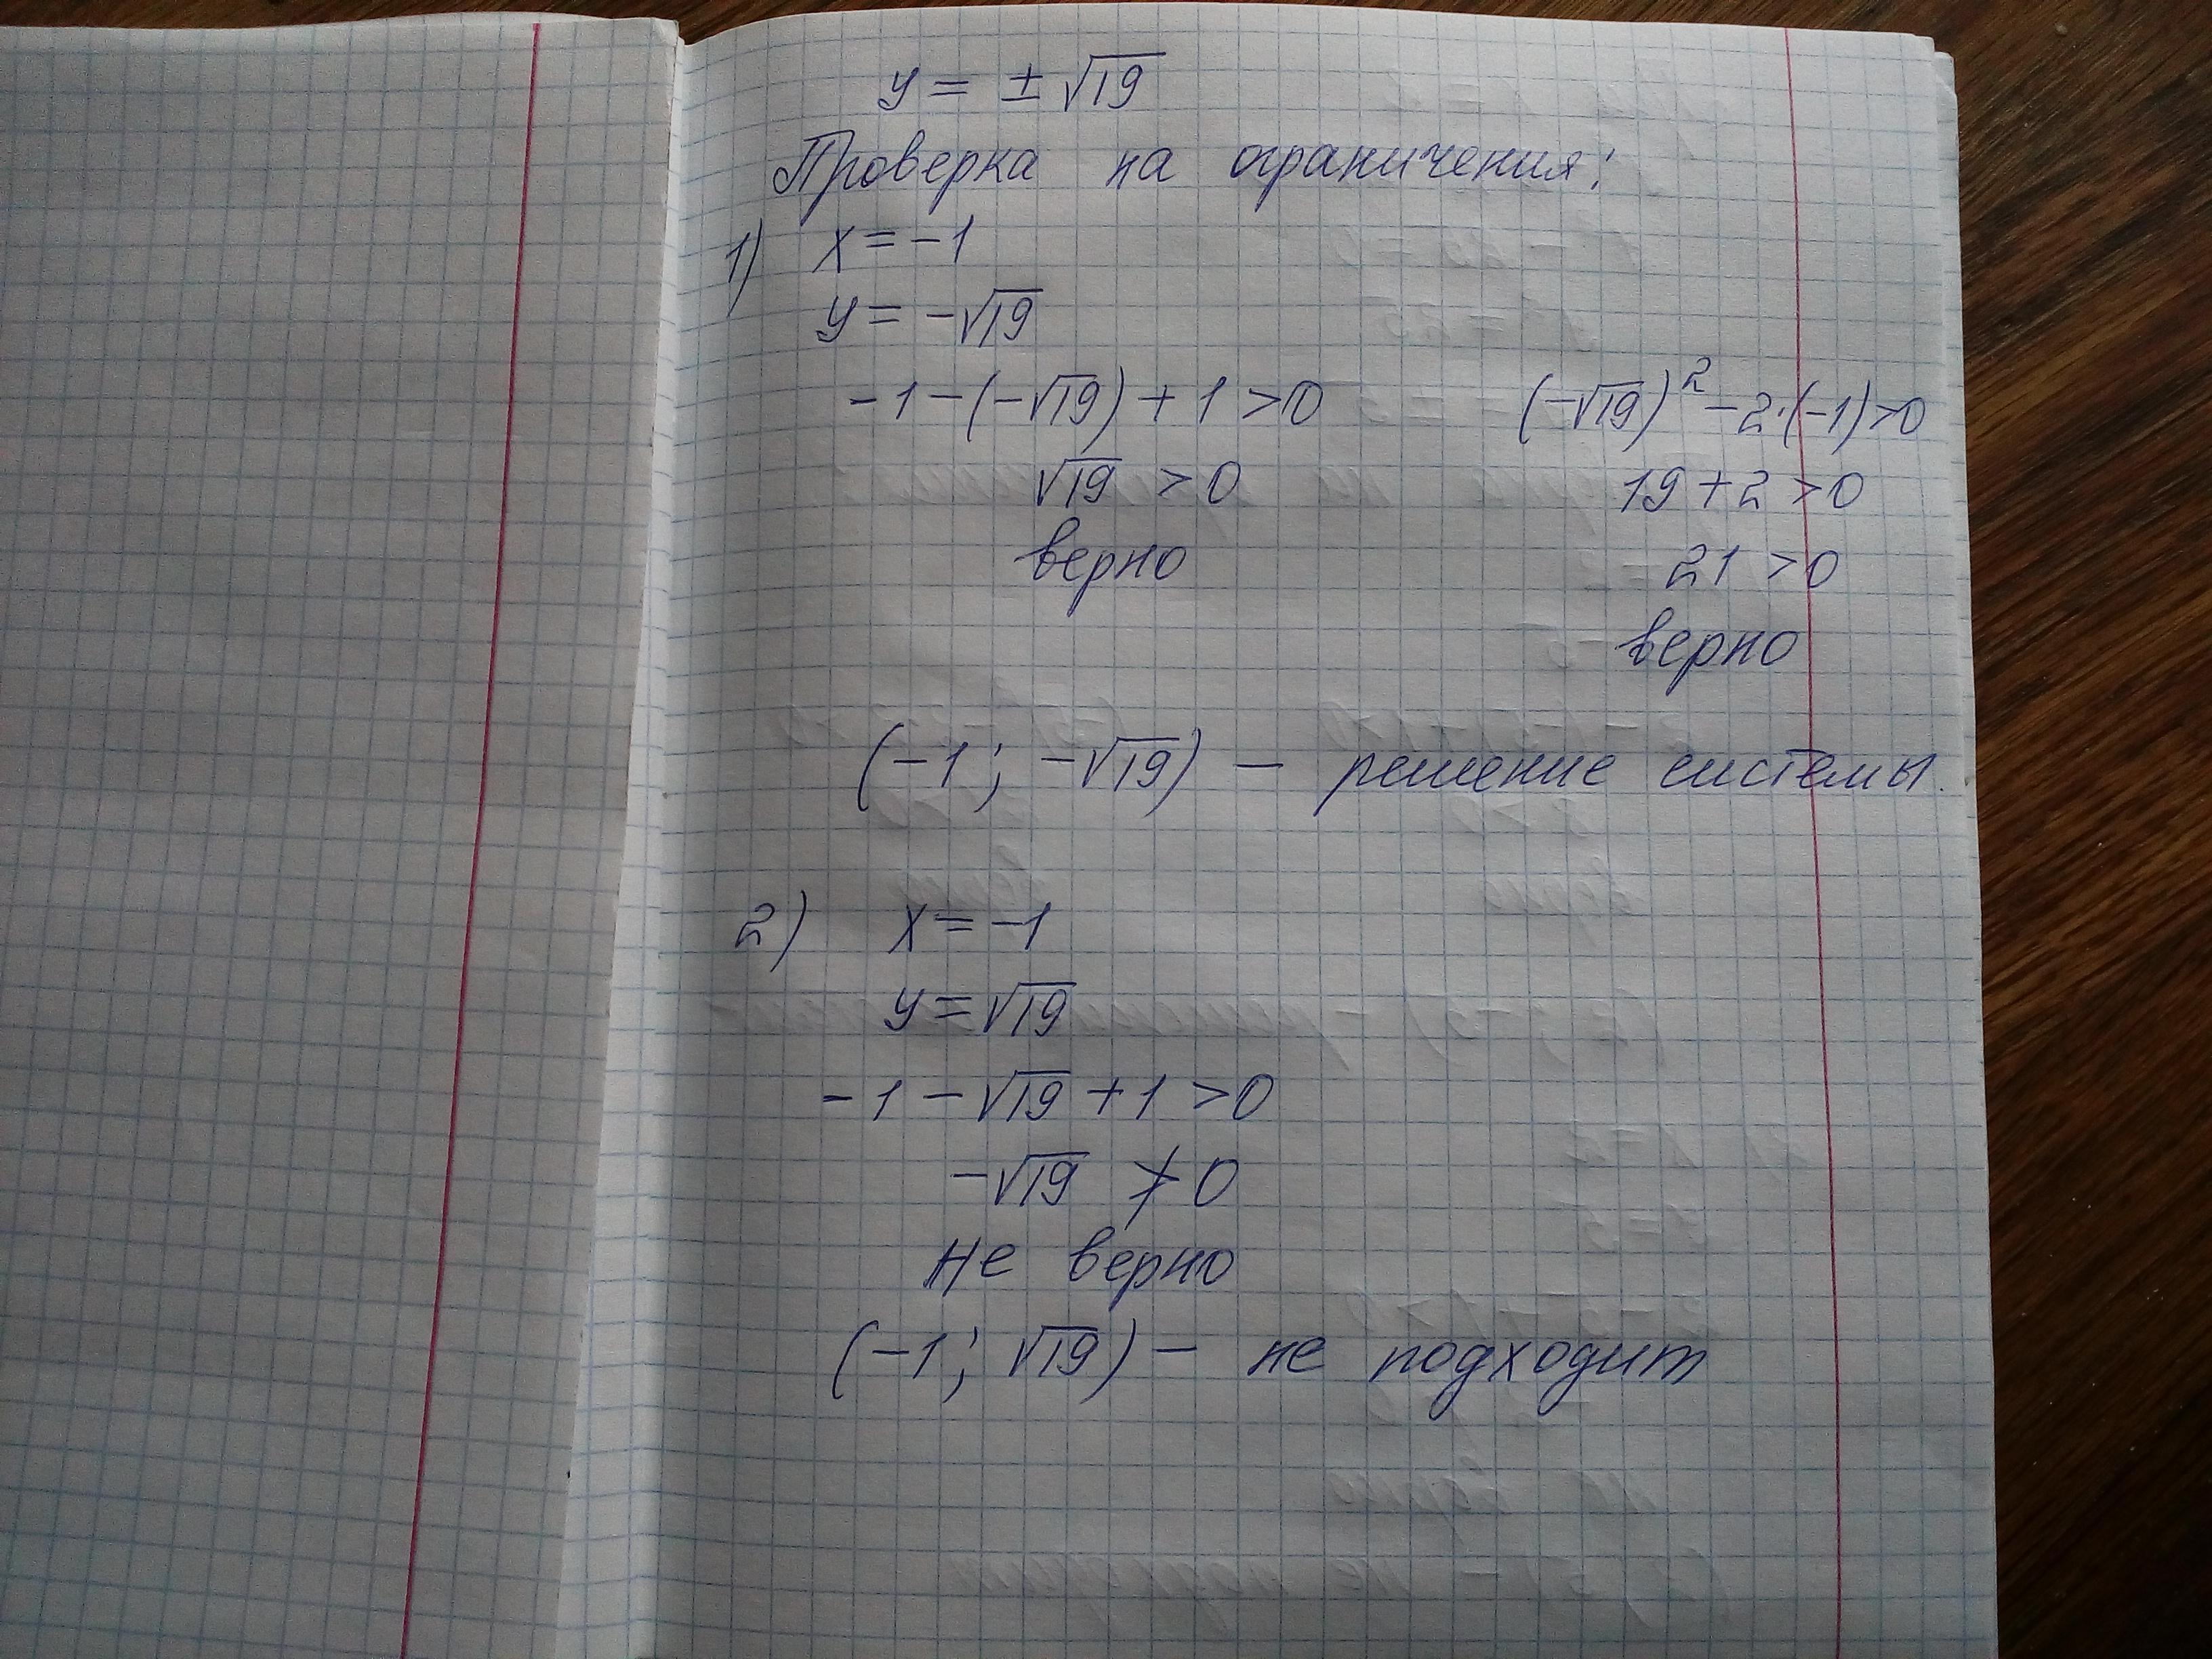 y = ± √19
Проверка на ограничения:
1) x = -1
y = -√19
-1 - (-√19) + 1 > 0    (-√19)² - 2·(-1) > 0
√19 > 0    19 + 2 > 0
верно    21 > 0
верно
(-1; -√19) - решение системы.
2) x = -1
y = √19
-1 - √19 + 1 > 0
-√19 ≯ 0
не верно
(-1; √19) - не подходит